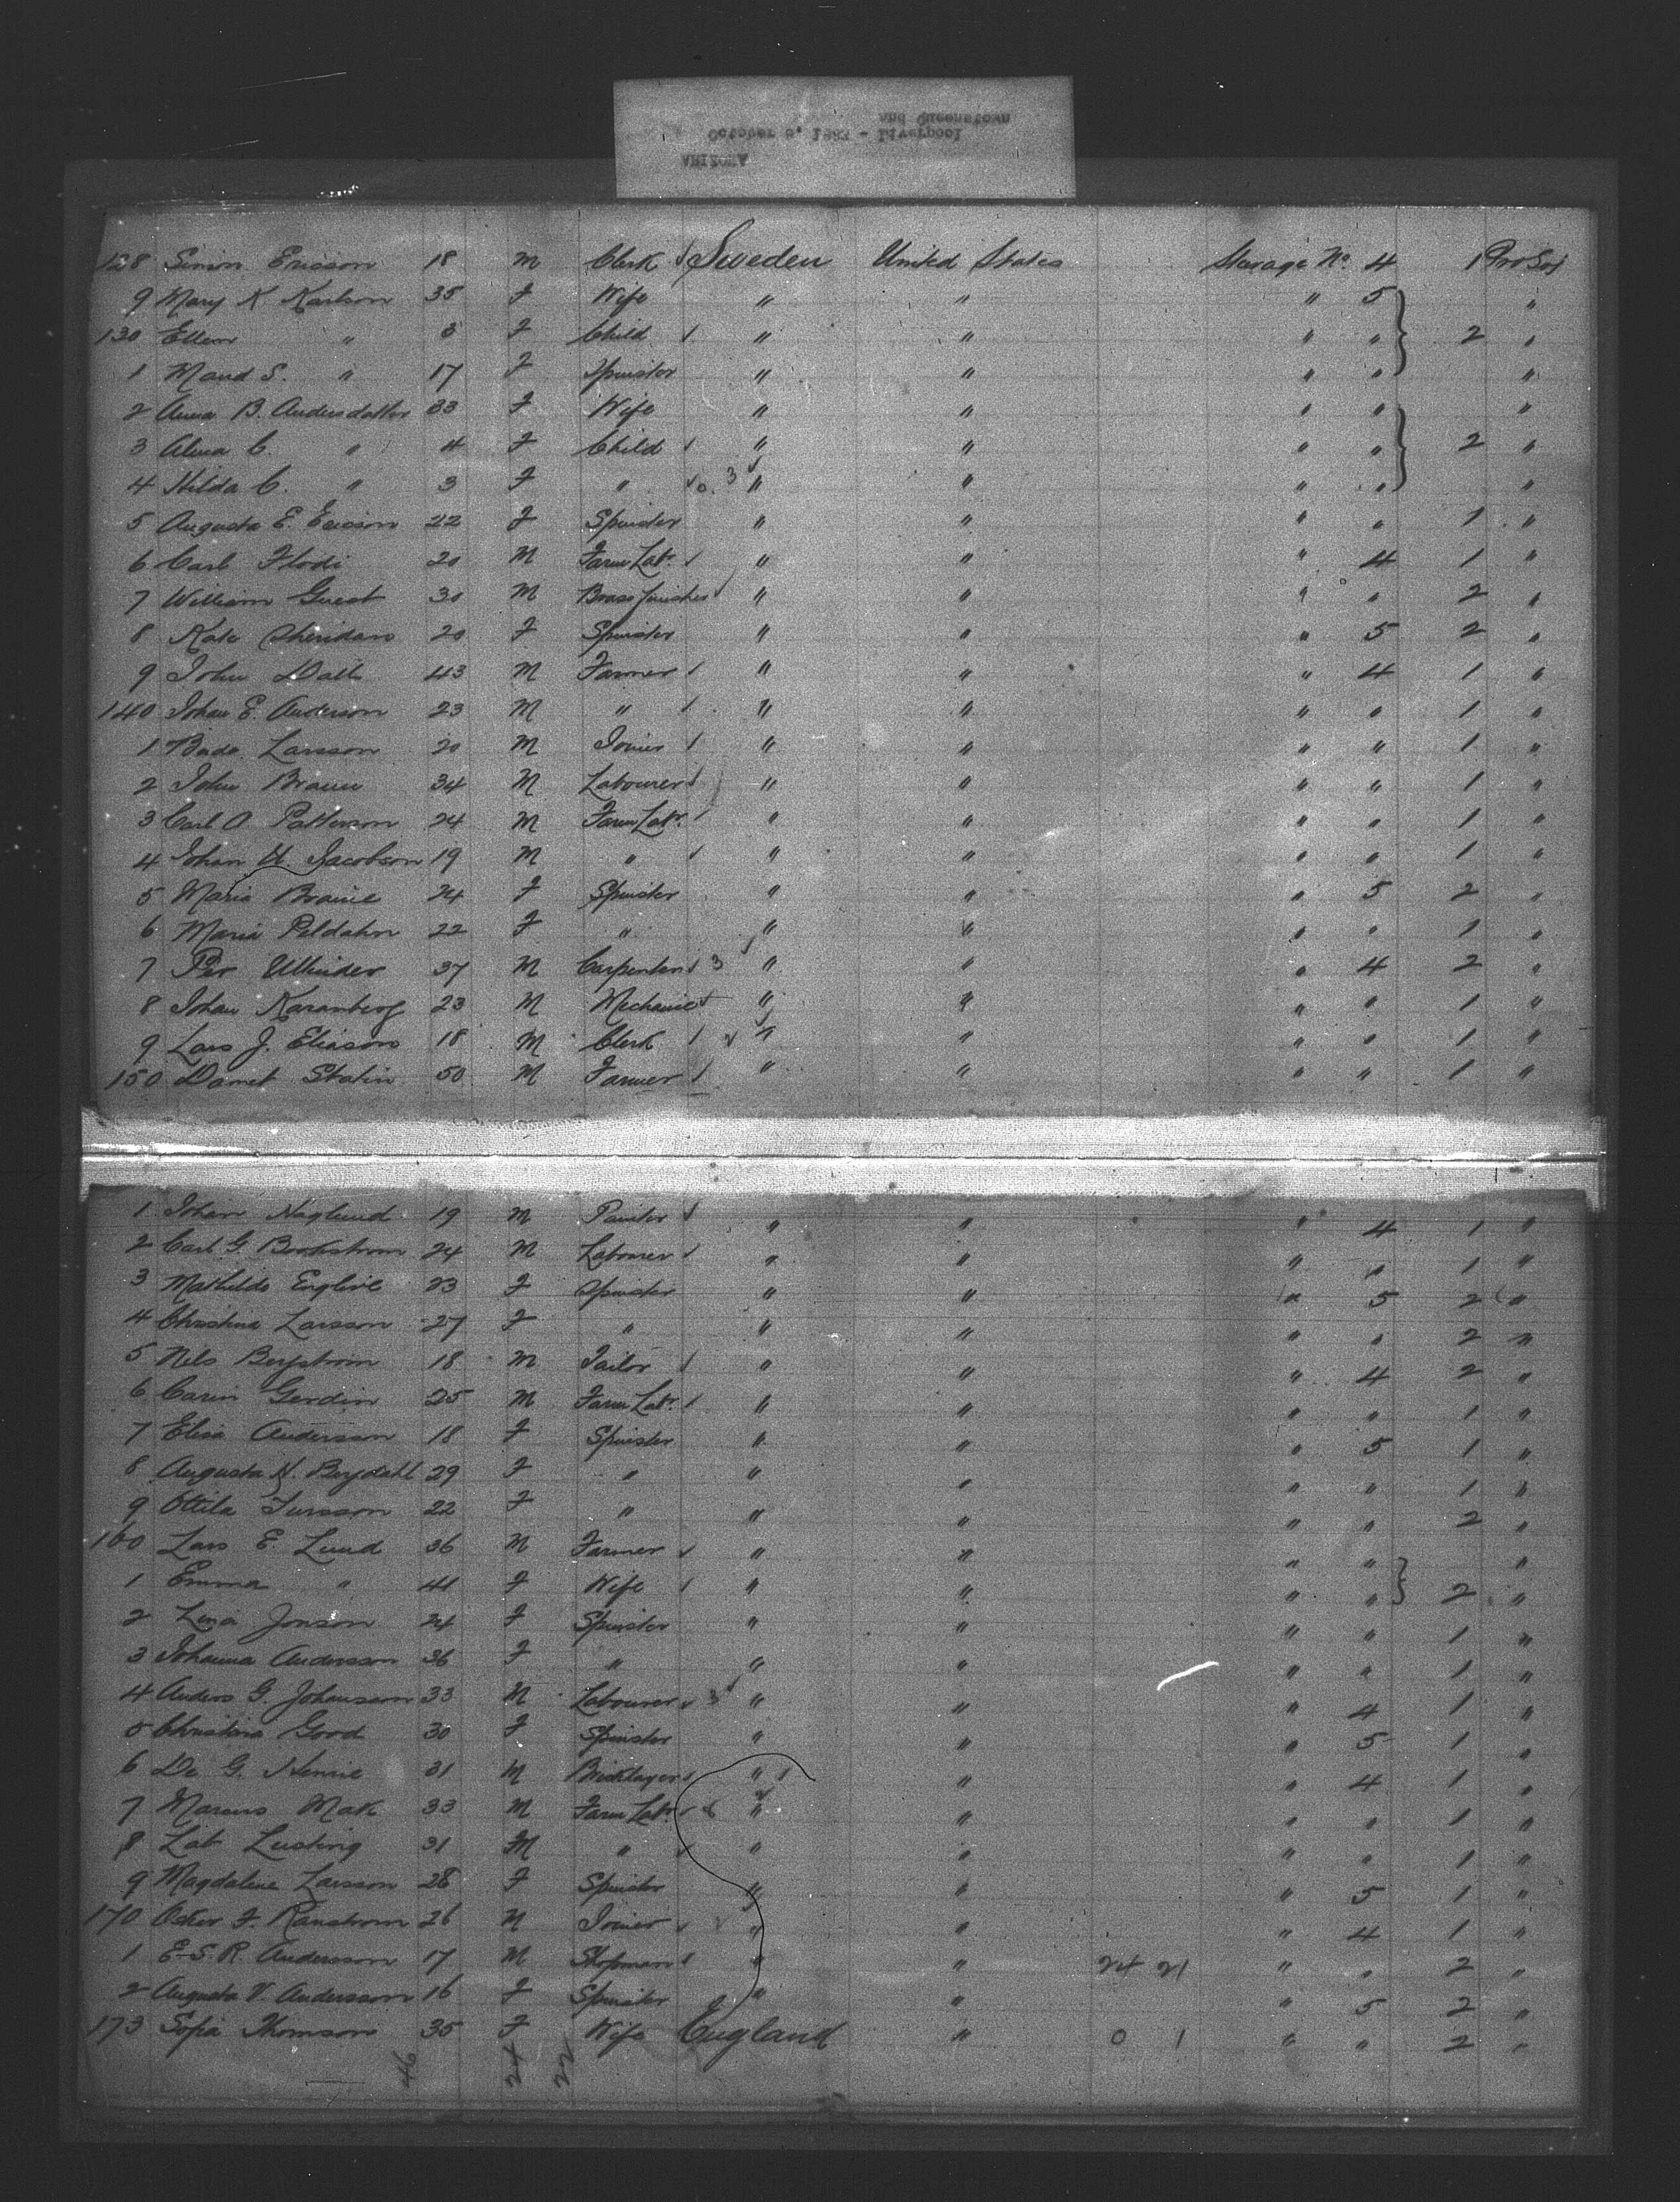 ARIZONA
October 8, 188 - Liverpool
and Queenstown
128 Simon Ericson 18 M Clerk Sweden United States Steerage No. 4 1 Pro Soj
9 Mary K Karlson 35 F Wife " " " 5 "
130 Ellen " 8 F Child " " " " 2 "
1 Maud S. " 17 F Spinster " " " " "
2 Anna B. Andersdotter 33 F Wife " " " " "
3 Alma C. " 4 F Child " " " " 2 "
4 Hilda C. " 3 F " 3 " " " " "
5 Augusta E. Ericson 22 F Spinster " " " " 1 "
6 Carl Flodi 20 M Farm Labr. " " " 4 1 "
7 William Guest 30 M Brass finisher " " " " 2 "
8 Kate Sheridan 20 F Spinster " " " 5 2 "
9 John Dall 43 M Farmer " " " 4 1 "
140 Johan E. Anderson 23 M " " " " " 1 "
1 Larsson 20 M Joiner " " " " 1 "
2 John Braun 34 M Labourer " " " " 1 "
3 Carl A Patterson 24 M Farm Labr. " " " " 1 "
4 Johan Jacobson 19 M " " " " " 1 "
5 Maria Braine 24 F Spinster " " " 5 2 "
6 Maria Peldahn 22 F " " " " " 1 "
7 Per 37 M Carpenter 3 " " " 4 2 "
8 Johan Karanberg 23 M Mechanic " " " " 1 "
9 Lars J. Eliason 18 M Clerk " " " " 1 "
150 Stalin 50 M Farmer " " " " 1 "
1 Johan Haglund 19 M Painter " " " 4 1 "
2 Carl G. Bookstrom 24 M Labourer " " " " 1 "
3 Mathilda 23 F Spinster " " " 5 2 "
4 Christina Larsson 27 F " " " " " 2 "
5 Nils Bergstrom 18 M Tailor " " " 4 2 "
6 Carin Gerdin 25 M Farm Labr. " " " " 1 "
7 Elisa Andersson 18 F Spinster " " " 5 1 "
8 Augusta N. Bergdahl 29 F " " " " " 1 "
9 Ottila 22 F " " " " " 2 "
160 Lars E. Lund 36 M Farmer " " " " "
1 Emma " 41 F Wife " " " " 2 "
2 Lina Jonson 24 F Spinster " " " " 1 "
3 Johanna Andersson 36 F " " " " " 1 "
4 Anders G. Johansson 33 M Labourer 3 " " " 4 1 "
5 Christina Good 30 F Spinster " " " 5 1 "
6 De G. Hennie 31 M Bricklayer " " " 4 1 "
7 Marcus Mak 33 M Farm Labr. " " " " 1 "
8 Lusting 31 M " " " " " 1 "
9 Magdalena Larsson 28 F Spinster " " " 5 1 "
170 Oskar F. Ranstrom 26 M Joiner " " " 4 1 "
1 E. S. R. Andersson 17 M Shopman " " 24 21 " " 2 "
2 Augusta V. Andersson 16 F Spinster " " " 5 2 "
173 Sofia Thomson 35 F Wife England " 0 1 " " 2 "
46 24 22